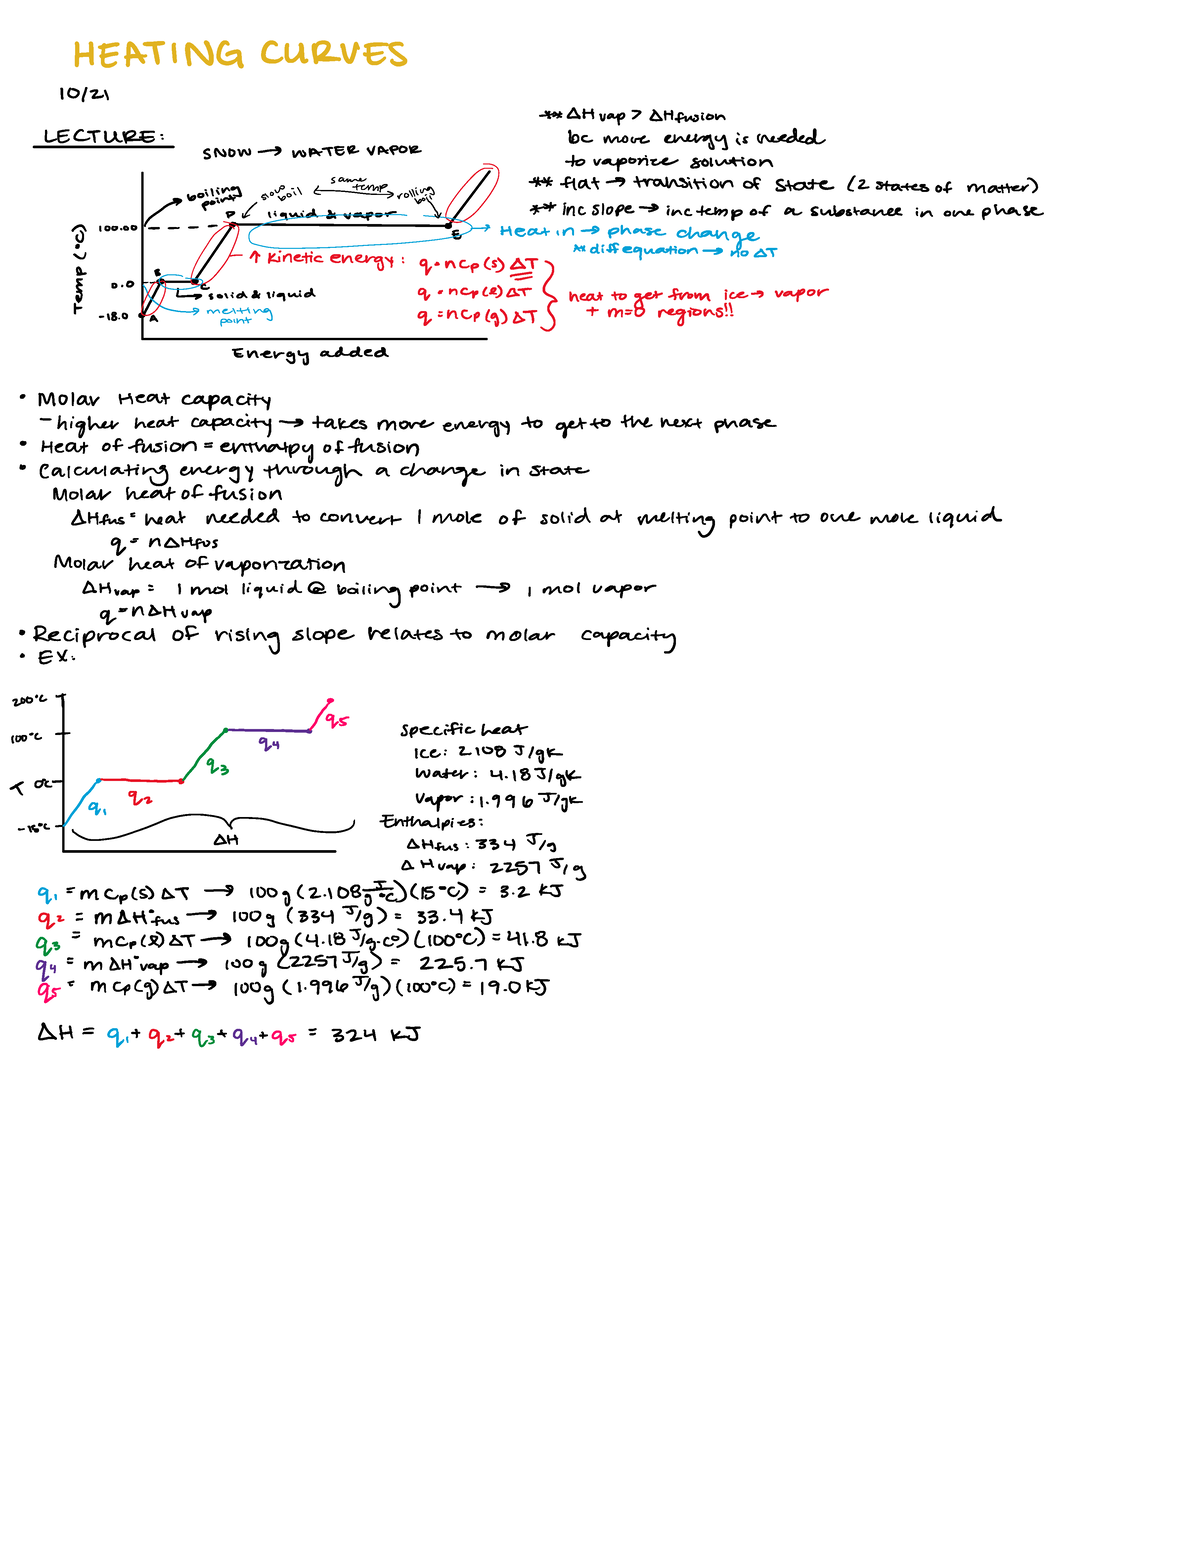 HEATING CURVES
10/21
LECTURE:
SNOW → WATER VAPOR
** ΔHvap > ΔHfusion
bc more energy is needed
to vaporize solution
** flat → transition of state (2 states of matter)
** inc slope → inc temp of a substance in one phase
Heat in → phase change
** diff equation → no ΔT
boiling
point
slow
boil
same
temp
rolling
boil
liquid & vapor
Temp (°C)
100.00
0.0
-18.0
A
B
C
D
E
solid & liquid
melting
point
Energy added
↑ kinetic energy: q = nCp(s) ΔT
q = nCp(l) ΔT
q = nCp(g) ΔT
heat to get from ice → vapor
+ m=0 regions!!
• Molar Heat capacity
- higher heat capacity → takes more energy to get to the next phase
• Heat of fusion = enthalpy of fusion
• Calculating energy through a change in state
Molar heat of fusion
ΔHfus = heat needed to convert 1 mole of solid at melting point to one mole liquid
q = nΔHfus
Molar heat of vaporization
ΔHvap = 1 mol liquid @ boiling point → 1 mol vapor
q = nΔHvap
• Reciprocal of rising slope relates to molar capacity
• EX:
200°C
100°C
T 0°C
-15°C
q1
q2
q3
q4
q5
ΔH
Specific heat
Ice: 2.108 J/gK
Water: 4.18 J/gK
Vapor: 1.996 J/gK
Enthalpies:
ΔHfus: 334 J/g
ΔHvap: 2257 J/g
q1 = mCp(s)ΔT → 100g (2.108 J/g°C)(15°C) = 3.2 KJ
q2 = mΔH°fus → 100g (334 J/g) = 33.4 KJ
q3 = mCp(l)ΔT → 100g (4.18 J/g·C°)(100°C) = 41.8 KJ
q4 = mΔH°vap → 100g (2257 J/g) = 225.7 KJ
q5 = mCp(g)ΔT → 100g (1.996 J/g)(100°C) = 19.0 KJ
ΔH = q1 + q2 + q3 + q4 + q5 = 324 KJ